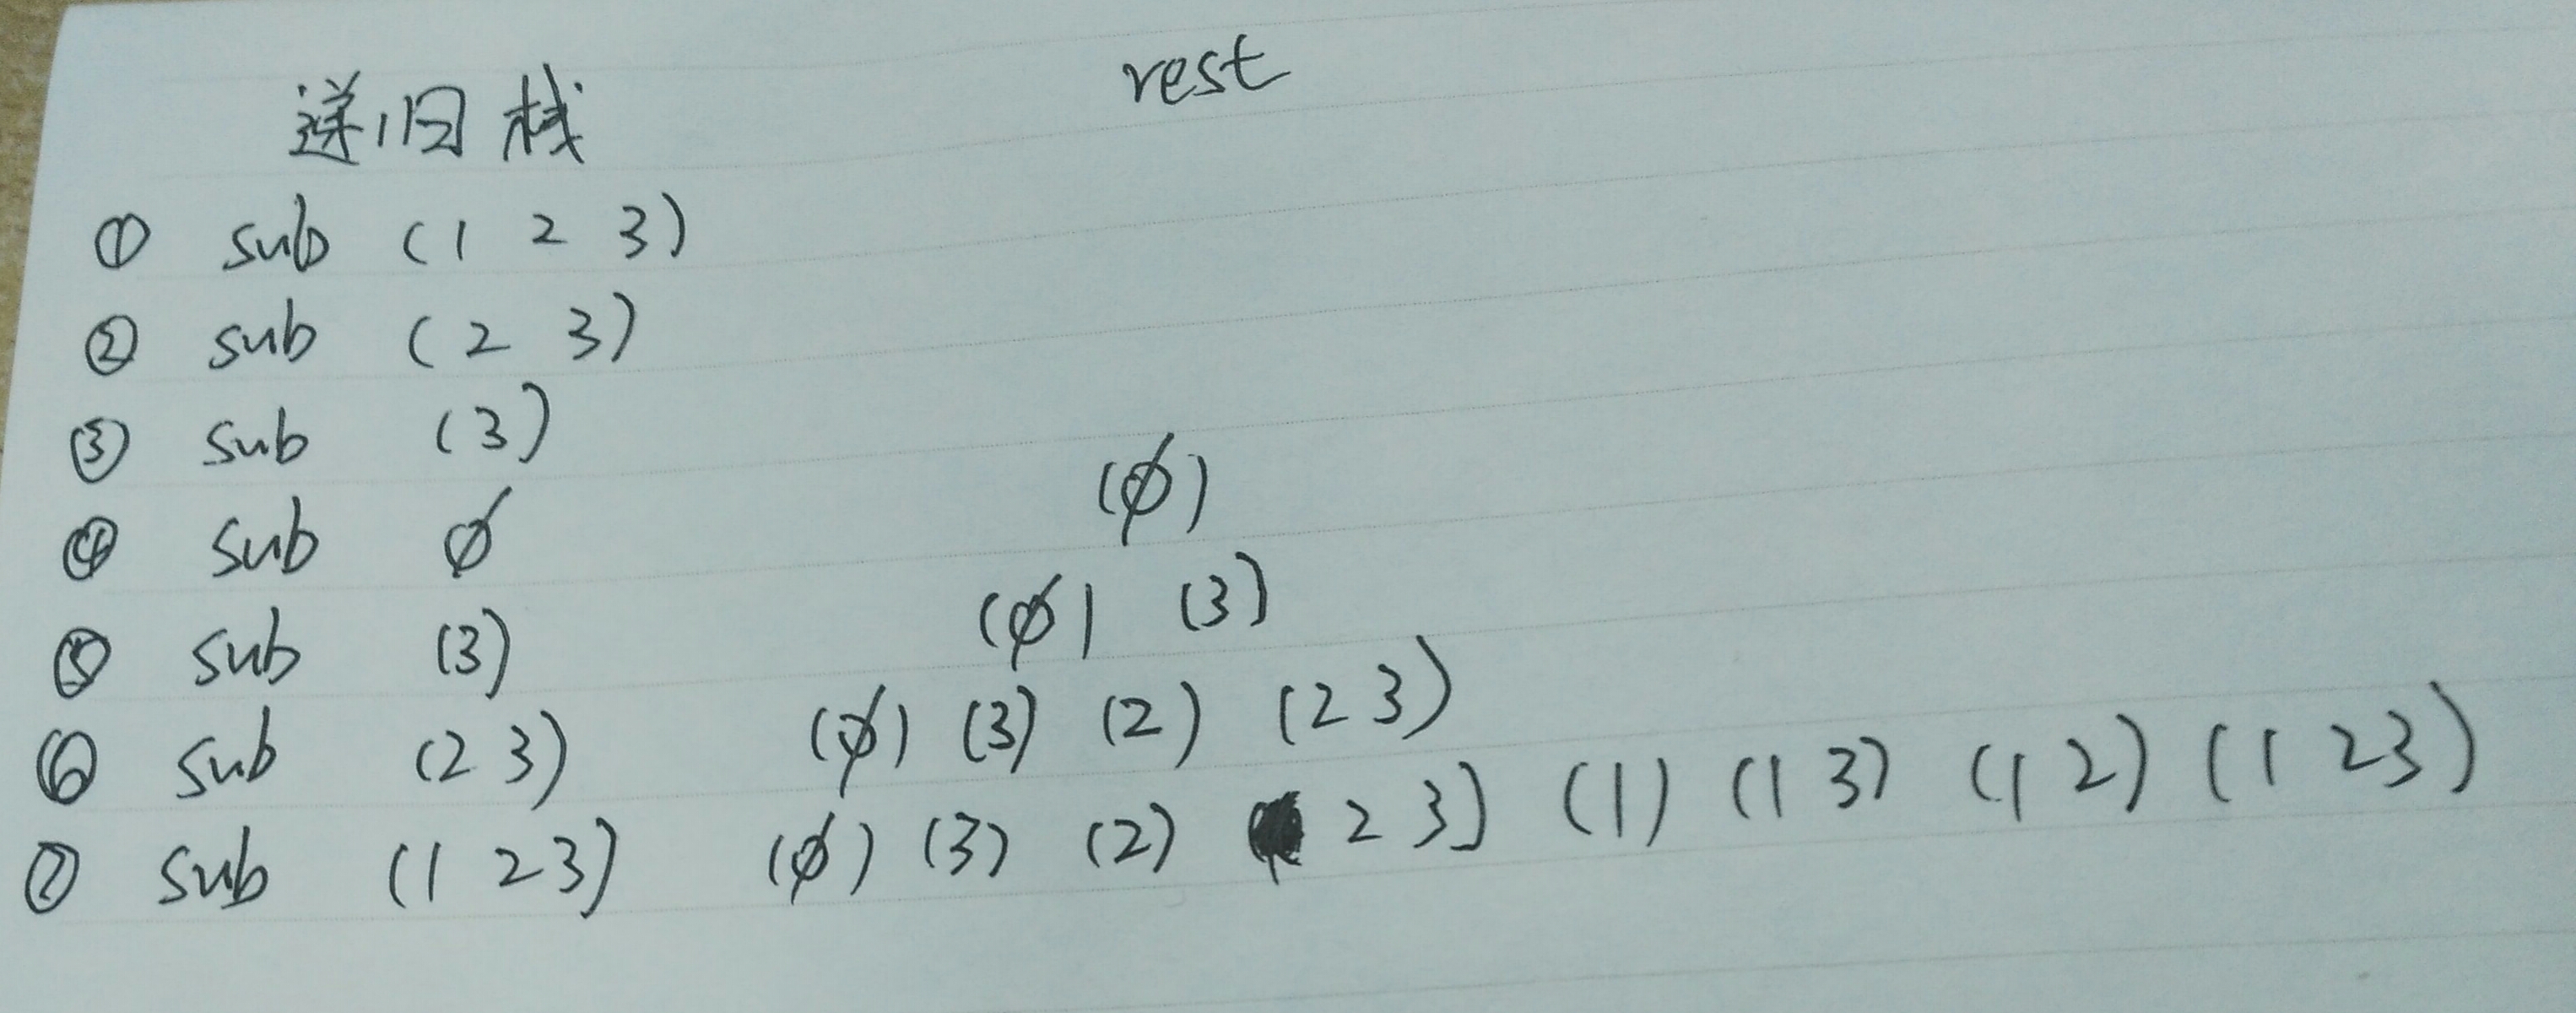 递归栈 rest
① sub (1 2 3)
② sub (2 3)
③ sub (3)
④ sub ∅ (∅)
⑤ sub (3) (∅) (3)
⑥ sub (2 3) (∅) (3) (2) (2 3)
⑦ sub (1 2 3) (∅) (3) (2) (2 3) (1) (1 3) (1 2) (1 2 3)